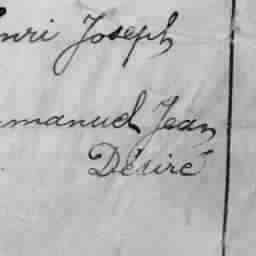 nri Joseph
manuel Jean
Désiré